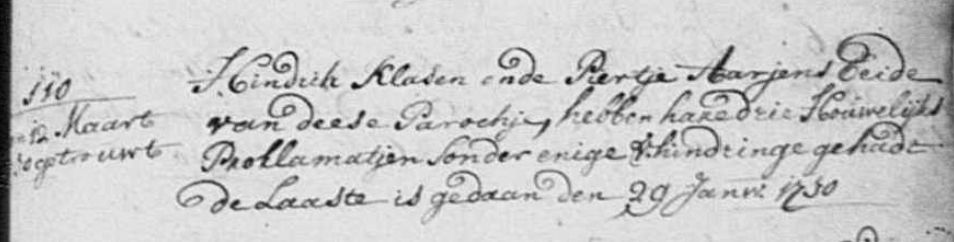 110
12 Maart
getrouwt
Hindrik Klasen ende Piertje Aarjens Beide
van deese Parochje, hebben hare drie Houwelijks
Proklamatjen sonder enige verhindringe gehadt
de Laaste is gedaan den 29 Janv: 1730